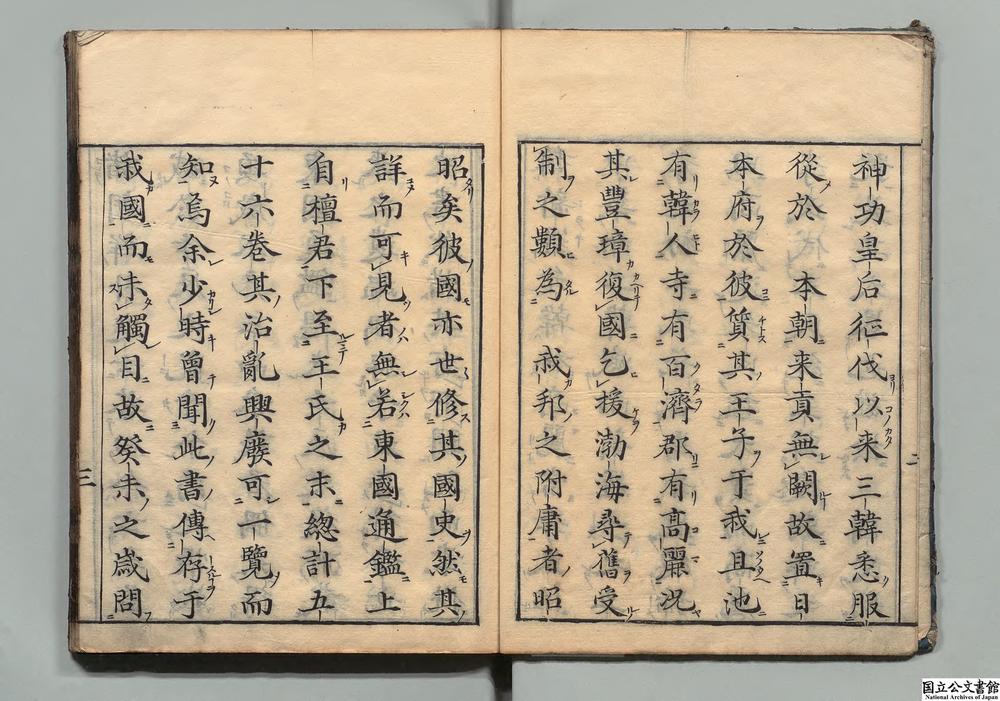 神功皇后征伐以来三韓悉服
從於本朝来貢無闕故置日
本府於彼質其王子于我且池
有韓人寺有百濟郡有高麗況
其豐璋復國乞援渤海尋舊受
制之類為我邦之附庸者昭
二
昭矣彼國亦世修其國史然其
詳而可見者無若東國通鑑上
自檀君下至王氏之末緫計五
十六卷其治亂興廢可一覽而
知焉余少時曾聞此書傳存于
我國而未觸目故癸未之歲問
三
国立公文書館
National Archives of Japan